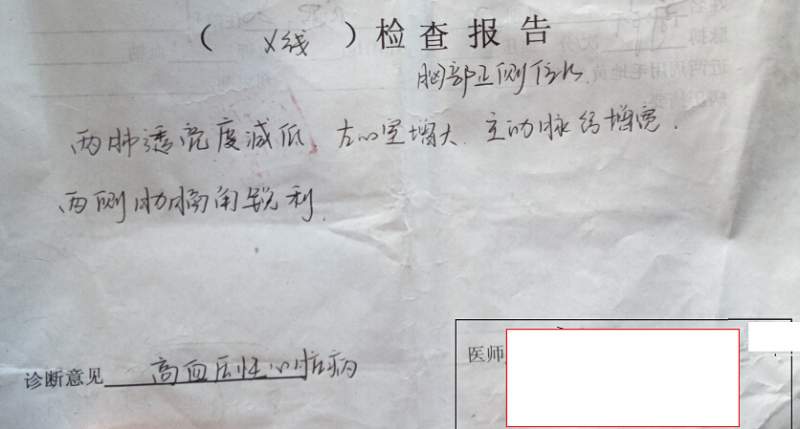 （ X线 ）检查报告
胸部正侧位片
两肺透亮度减低、左心室增大、主动脉结增宽.
两侧肋膈角锐利.
诊断意见 高血压性心脏病
医师